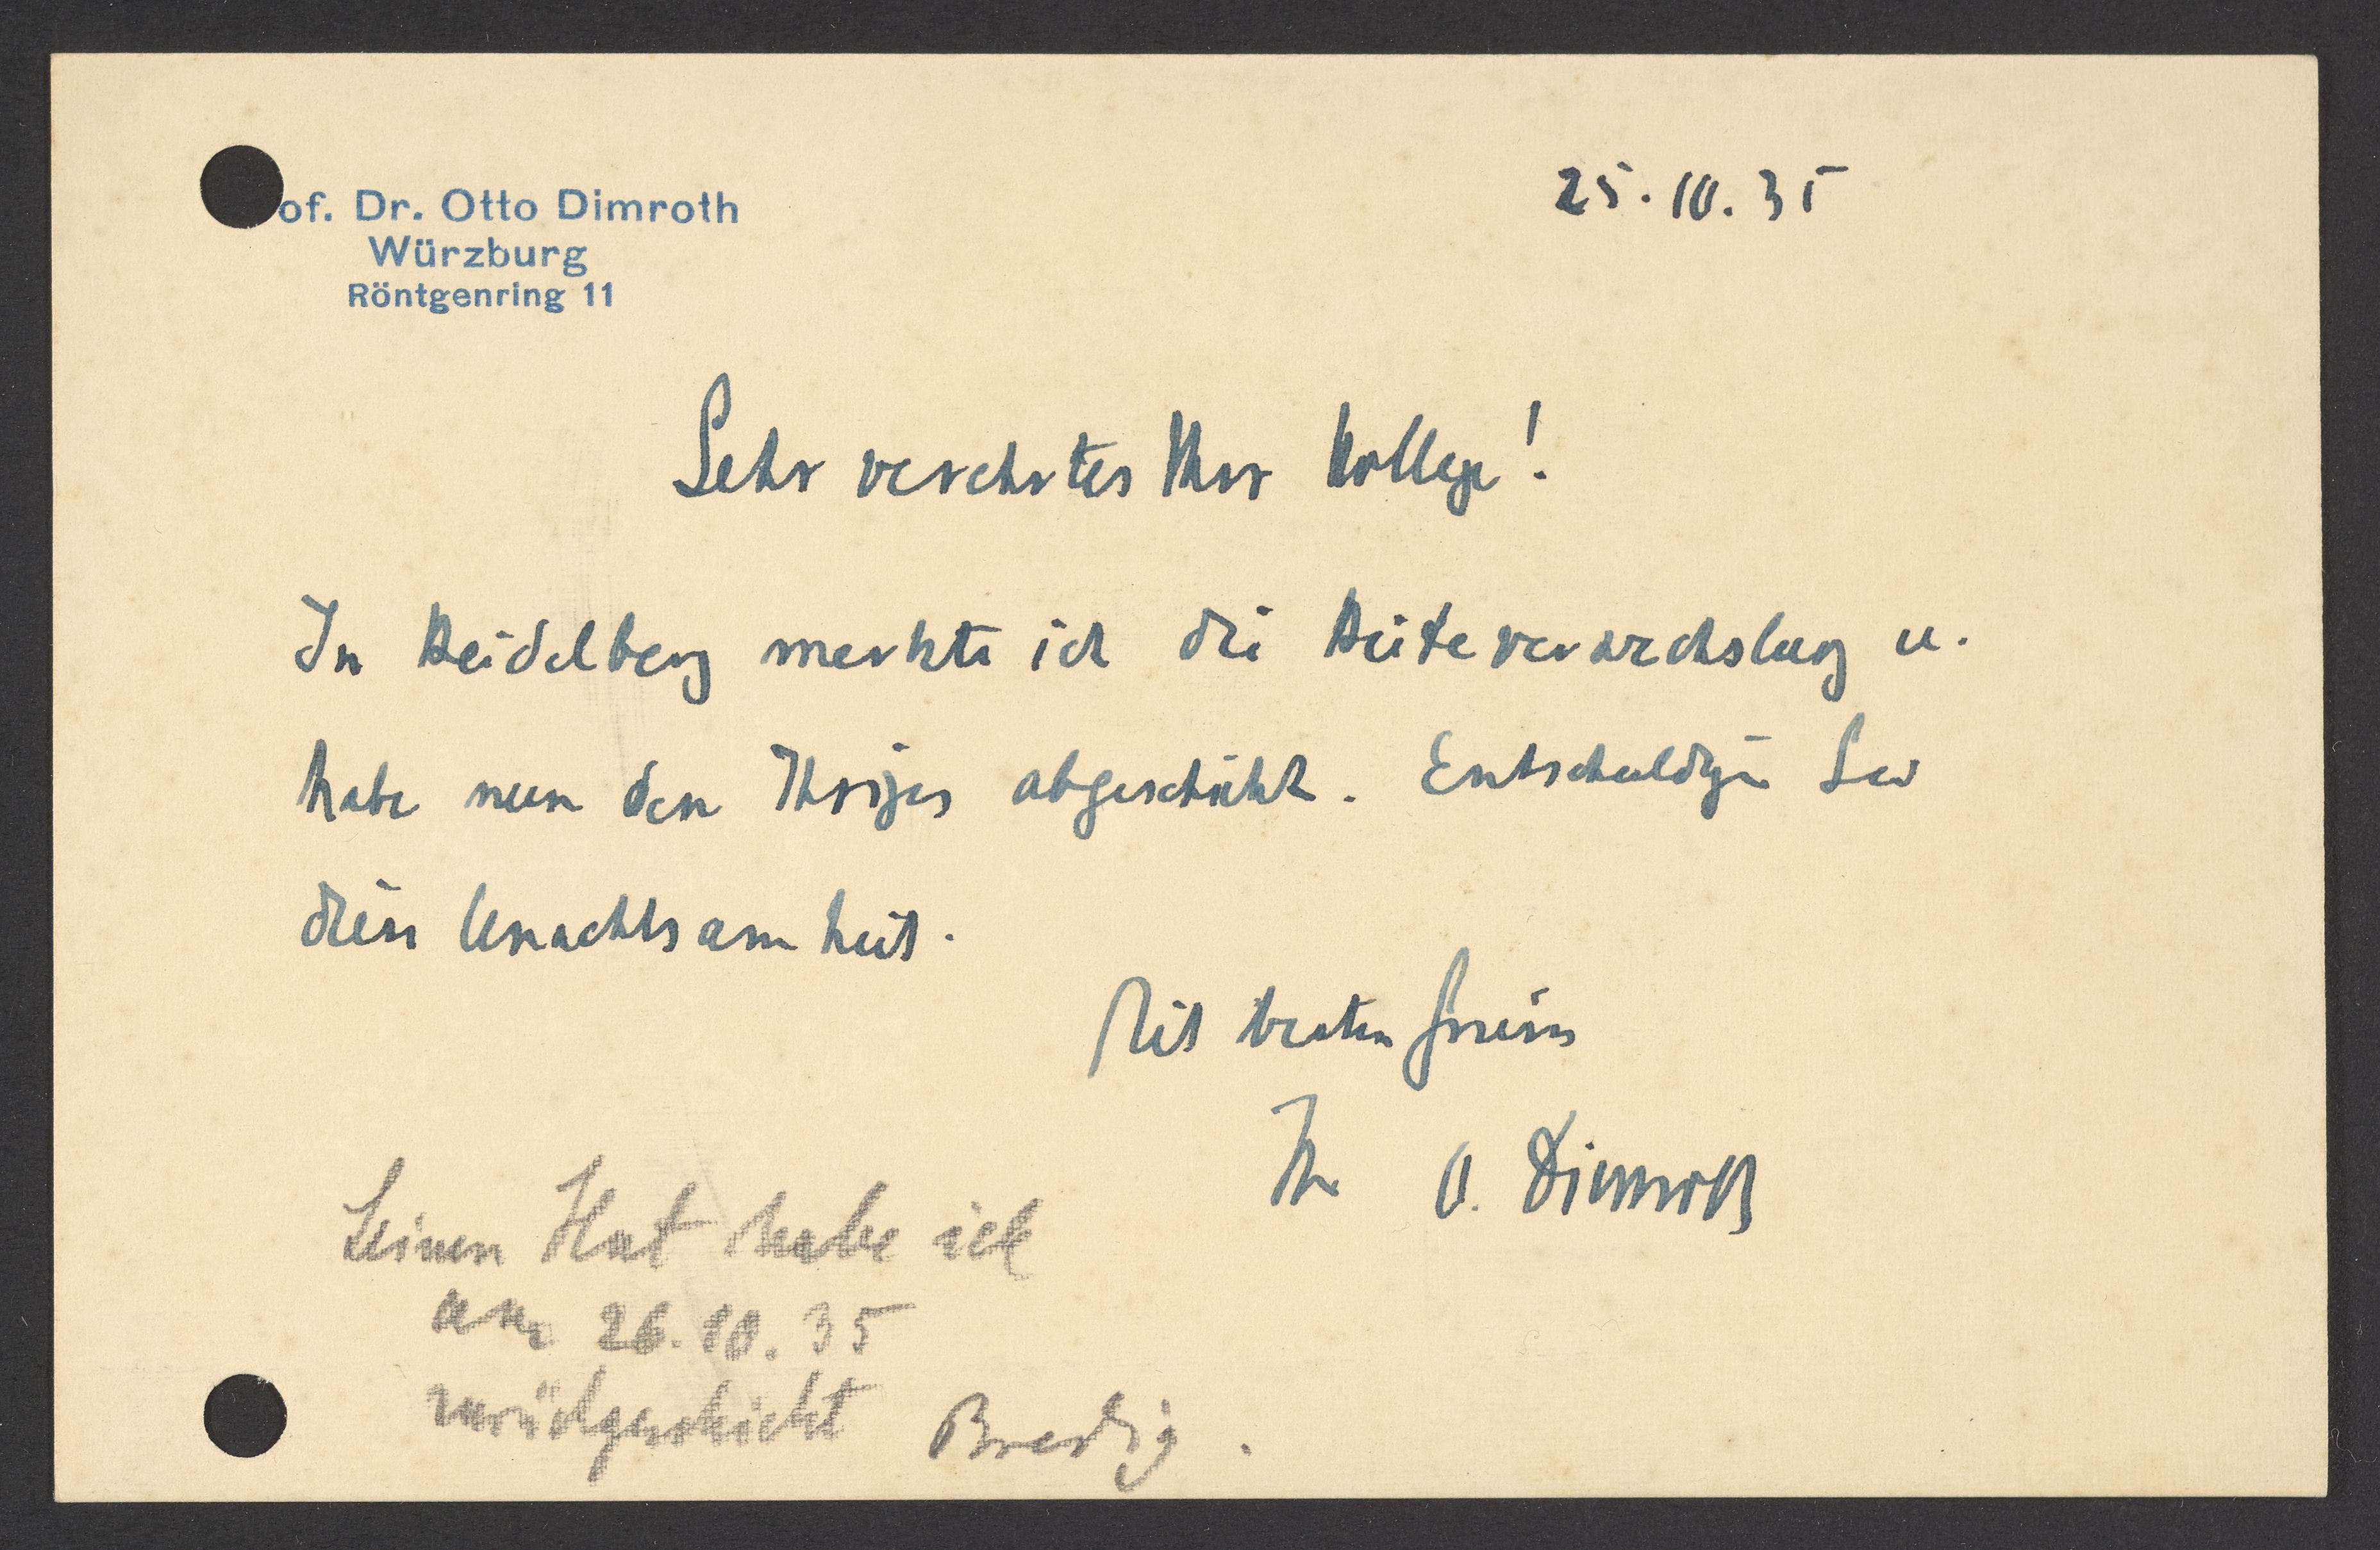 of. Dr. Otto Dimroth
Würzburg
Röntgenring 11
25.10.35
Sehr verehrter Herr Kollege!
In Heidelberg merkte ich die Huteverwechslung u.
habe nun den Ihrigen abgeschickt. Entschuldigen Sie
diese Unachtsamkeit.
Mit besten Grüssen
Ihr O. Dimroth
Seinen Hut habe ich
am 26.10.35
zurückgeschickt Bredig.